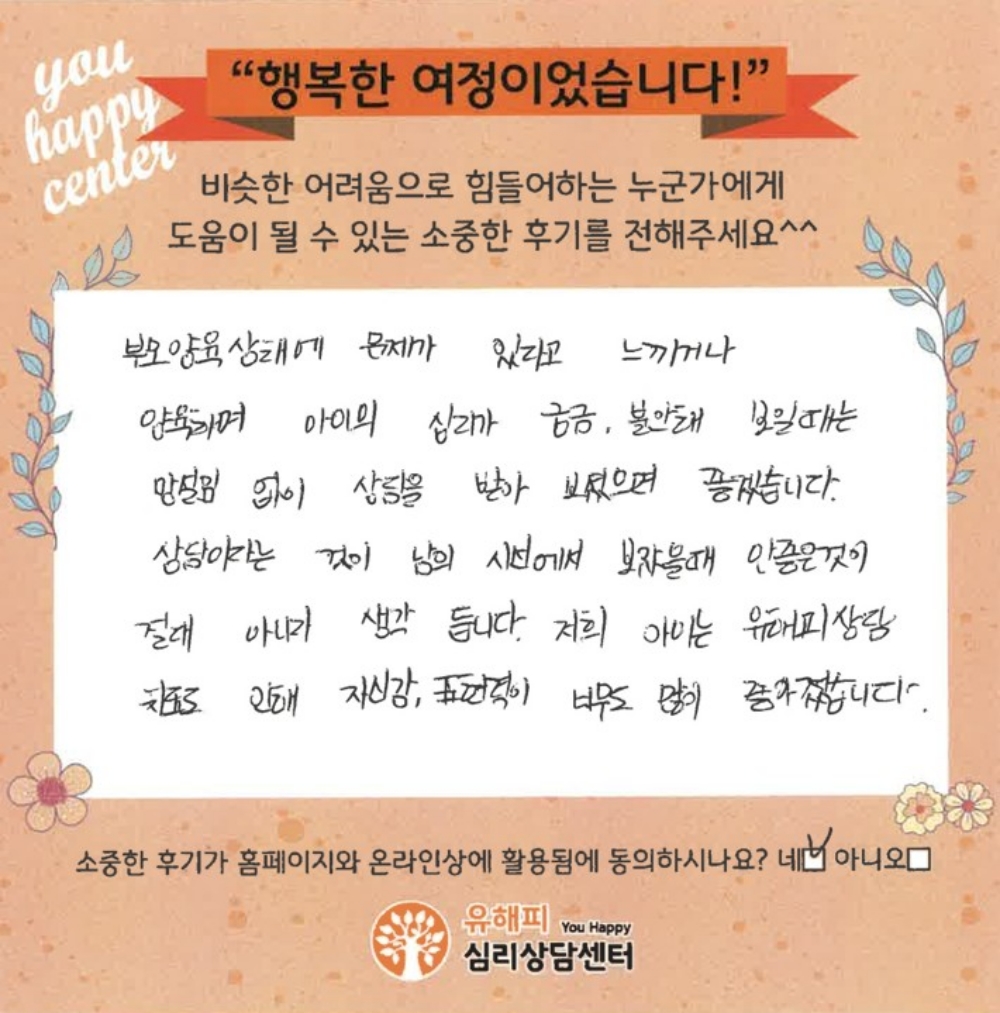 you
happy
center
“행복한 여정이었습니다!”
비슷한 어려움으로 힘들어하는 누군가에게
도움이 될 수 있는 소중한 후기를 전해주세요^^
부모양육상태에 문제가 있다고 느끼거나
양육하며 아이의 심리가 궁금, 불안해 보일때는
망설임 없이 상담을 받아 보셨으면 좋겠습니다.
상담이라는 것이 남의 시선에서 보자을때 안좋은것이
절대 아니라 생각 듭니다. 저희 아이는 유해피상담
치료로 인해 자신감, 표현력이 너무도 많이 좋아졌습니다.
소중한 후기가 홈페이지와 온라인상에 활용됨에 동의하시나요? 네 아니오
유해피 You Happy
심리상담센터